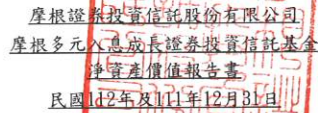 摩根證券投資信託股份有限公司
摩根多元入息成長證券投資信託基金
淨資產價值報告書
民國112年及111年12月31日